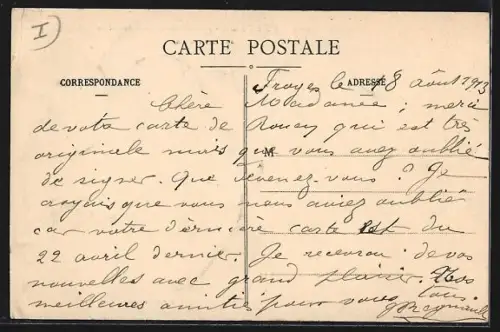 I
CARTE POSTALE
CORRESPONDANCE
ADRESSE
Troyes le 18 août 1913
Chère Madame ; merci
de votre carte de Rouen qui est très
originale mais que vous avez oublié
M
de signer. Que devenez vous ? Je
croyais que vous nous aviez oublié
car votre dernière carte est du
22 avril dernier. Je recevrai de vos
nouvelles avec grand plaisir. Nos
meilleures amitiés pour vous tous.